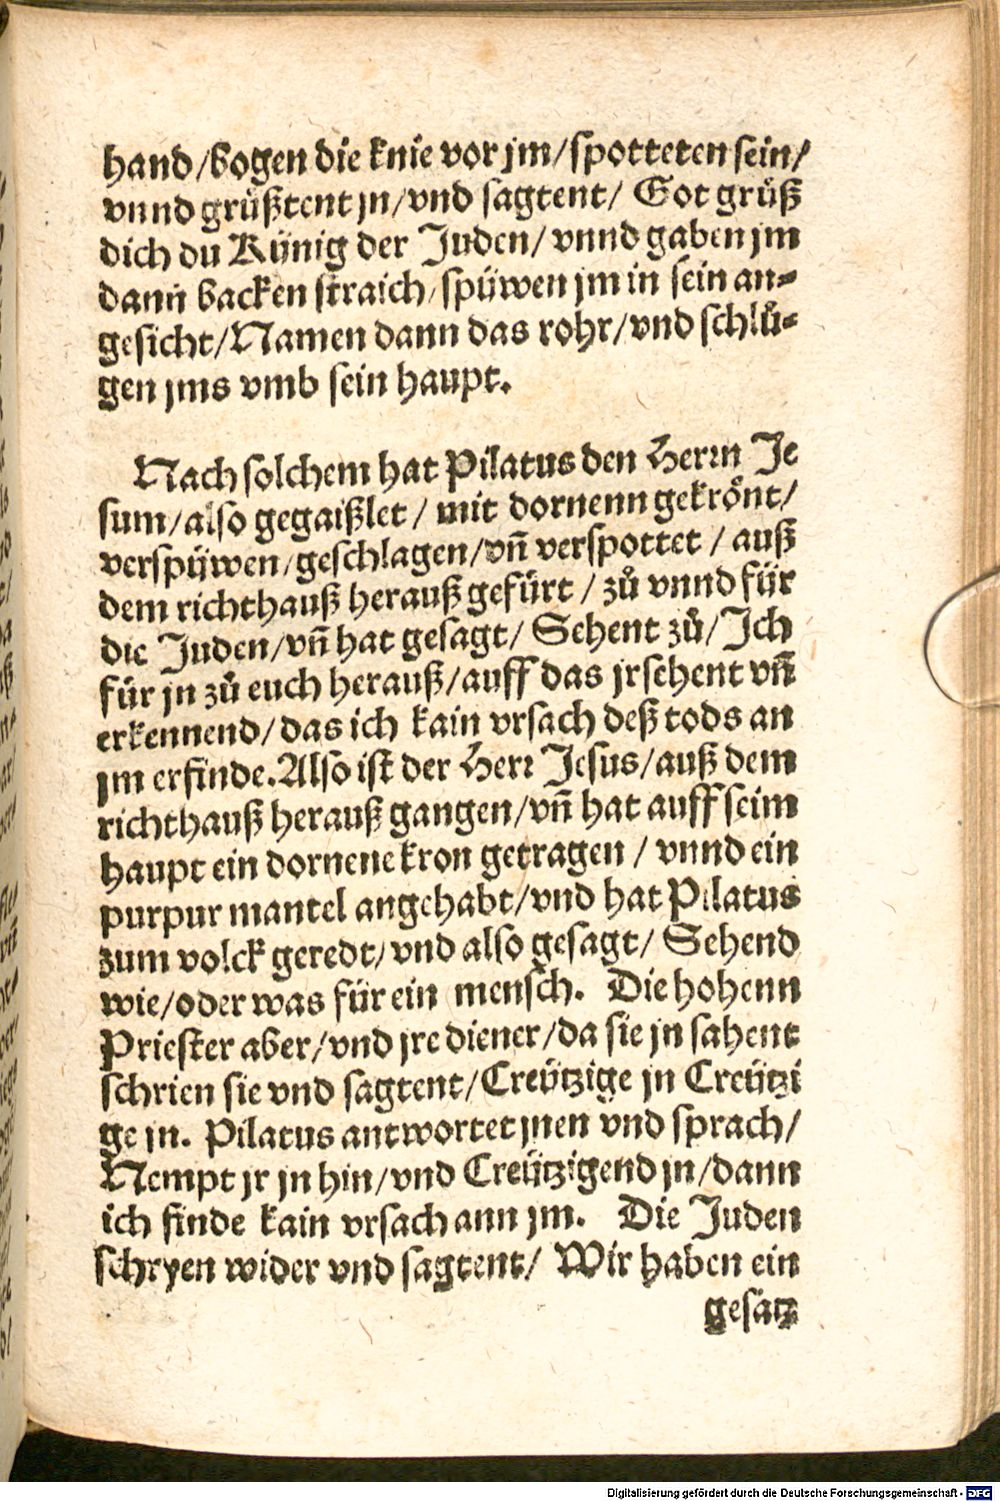 hand/bogen die knie vor jm/spotteten sein/
vnnd grüßtent jn/vnd sagtent/ Got grüß
dich du Künig der Juden/ vnnd gaben jm
dann backen straich/spüwen jm in sein an⸗
gesicht/Namen dann das rohr/vnd schlů⸗
gen jms vmb sein haupt.
Nach solchem hat Pilatus den Herrn Je
sum/also gegaißlet/ mit dornenn gekrönt/
verspüwen/geschlagen/vñ verspottet/ auß
dem richthauß herauß gefürt/ zů vnnd für
die Juden/vñ hat gesagt/ Sehent zů/Ich
für jn zů euch herauß/auff das jrsehent vñ
erkennend/das ich kain vrsach deß tods an
jm erfinde.Also ist der Herr Jesus/auß dem
richthauß herauß gangen/vñ hat auff seim
haupt ein dornene kron getragen/ vnnd ein
purpur mantel angehabt/vnd hat Pilatus
zum volck geredt/vnd also gesagt/ Sehend
wie/oder was für ein mensch. Die hohenn
Priester aber/vnd jre diener/da sie jn sahent
schrien sie vnd sagtent/Creützige jn Creützi
ge jn. Pilatus antwortet jnen vnd sprach/
Nempt jr jn hin/vnd Creützigend jn/dann
ich finde kain vrsach ann jm. Die Juden
schryen wider vnd sagtent/ Wir haben ein
gesatz
Digitalisierung gefördert durch die Deutsche Forschungsgemeinschaft - DFG